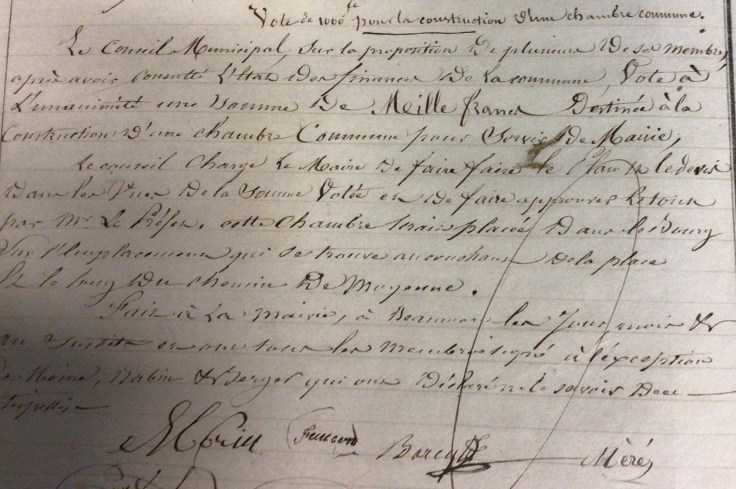 Vote de 1000 fc pour la construction d'une chambre commune.
Le Conseil Municipal, sur la proposition de plusieurs de ses membres,
après avoir consulté l'Etat des finances de la commune, Vote à
L'unanimité une somme de Meille francs Destinée à la
Construction d'une chambre Commune pour Servir de Mairie,
Le conseil charge le Maire de faire faire le Plan & le devis
dans les vues de la Somme Votée et de faire approuver le tout
par Mr. Le Préfet. cette chambre serait placée dans le Bourg
Sur l'Emplacement qui se trouve au couchant de la place
& le long du chemin de Mayenne.
Fait à la mairie, à les Jour, mois &
an susdits et ont tous les membres signé à l'exception
de & Berger qui ont Déclaré ne le savoir De ce
Morin Boreau Méré